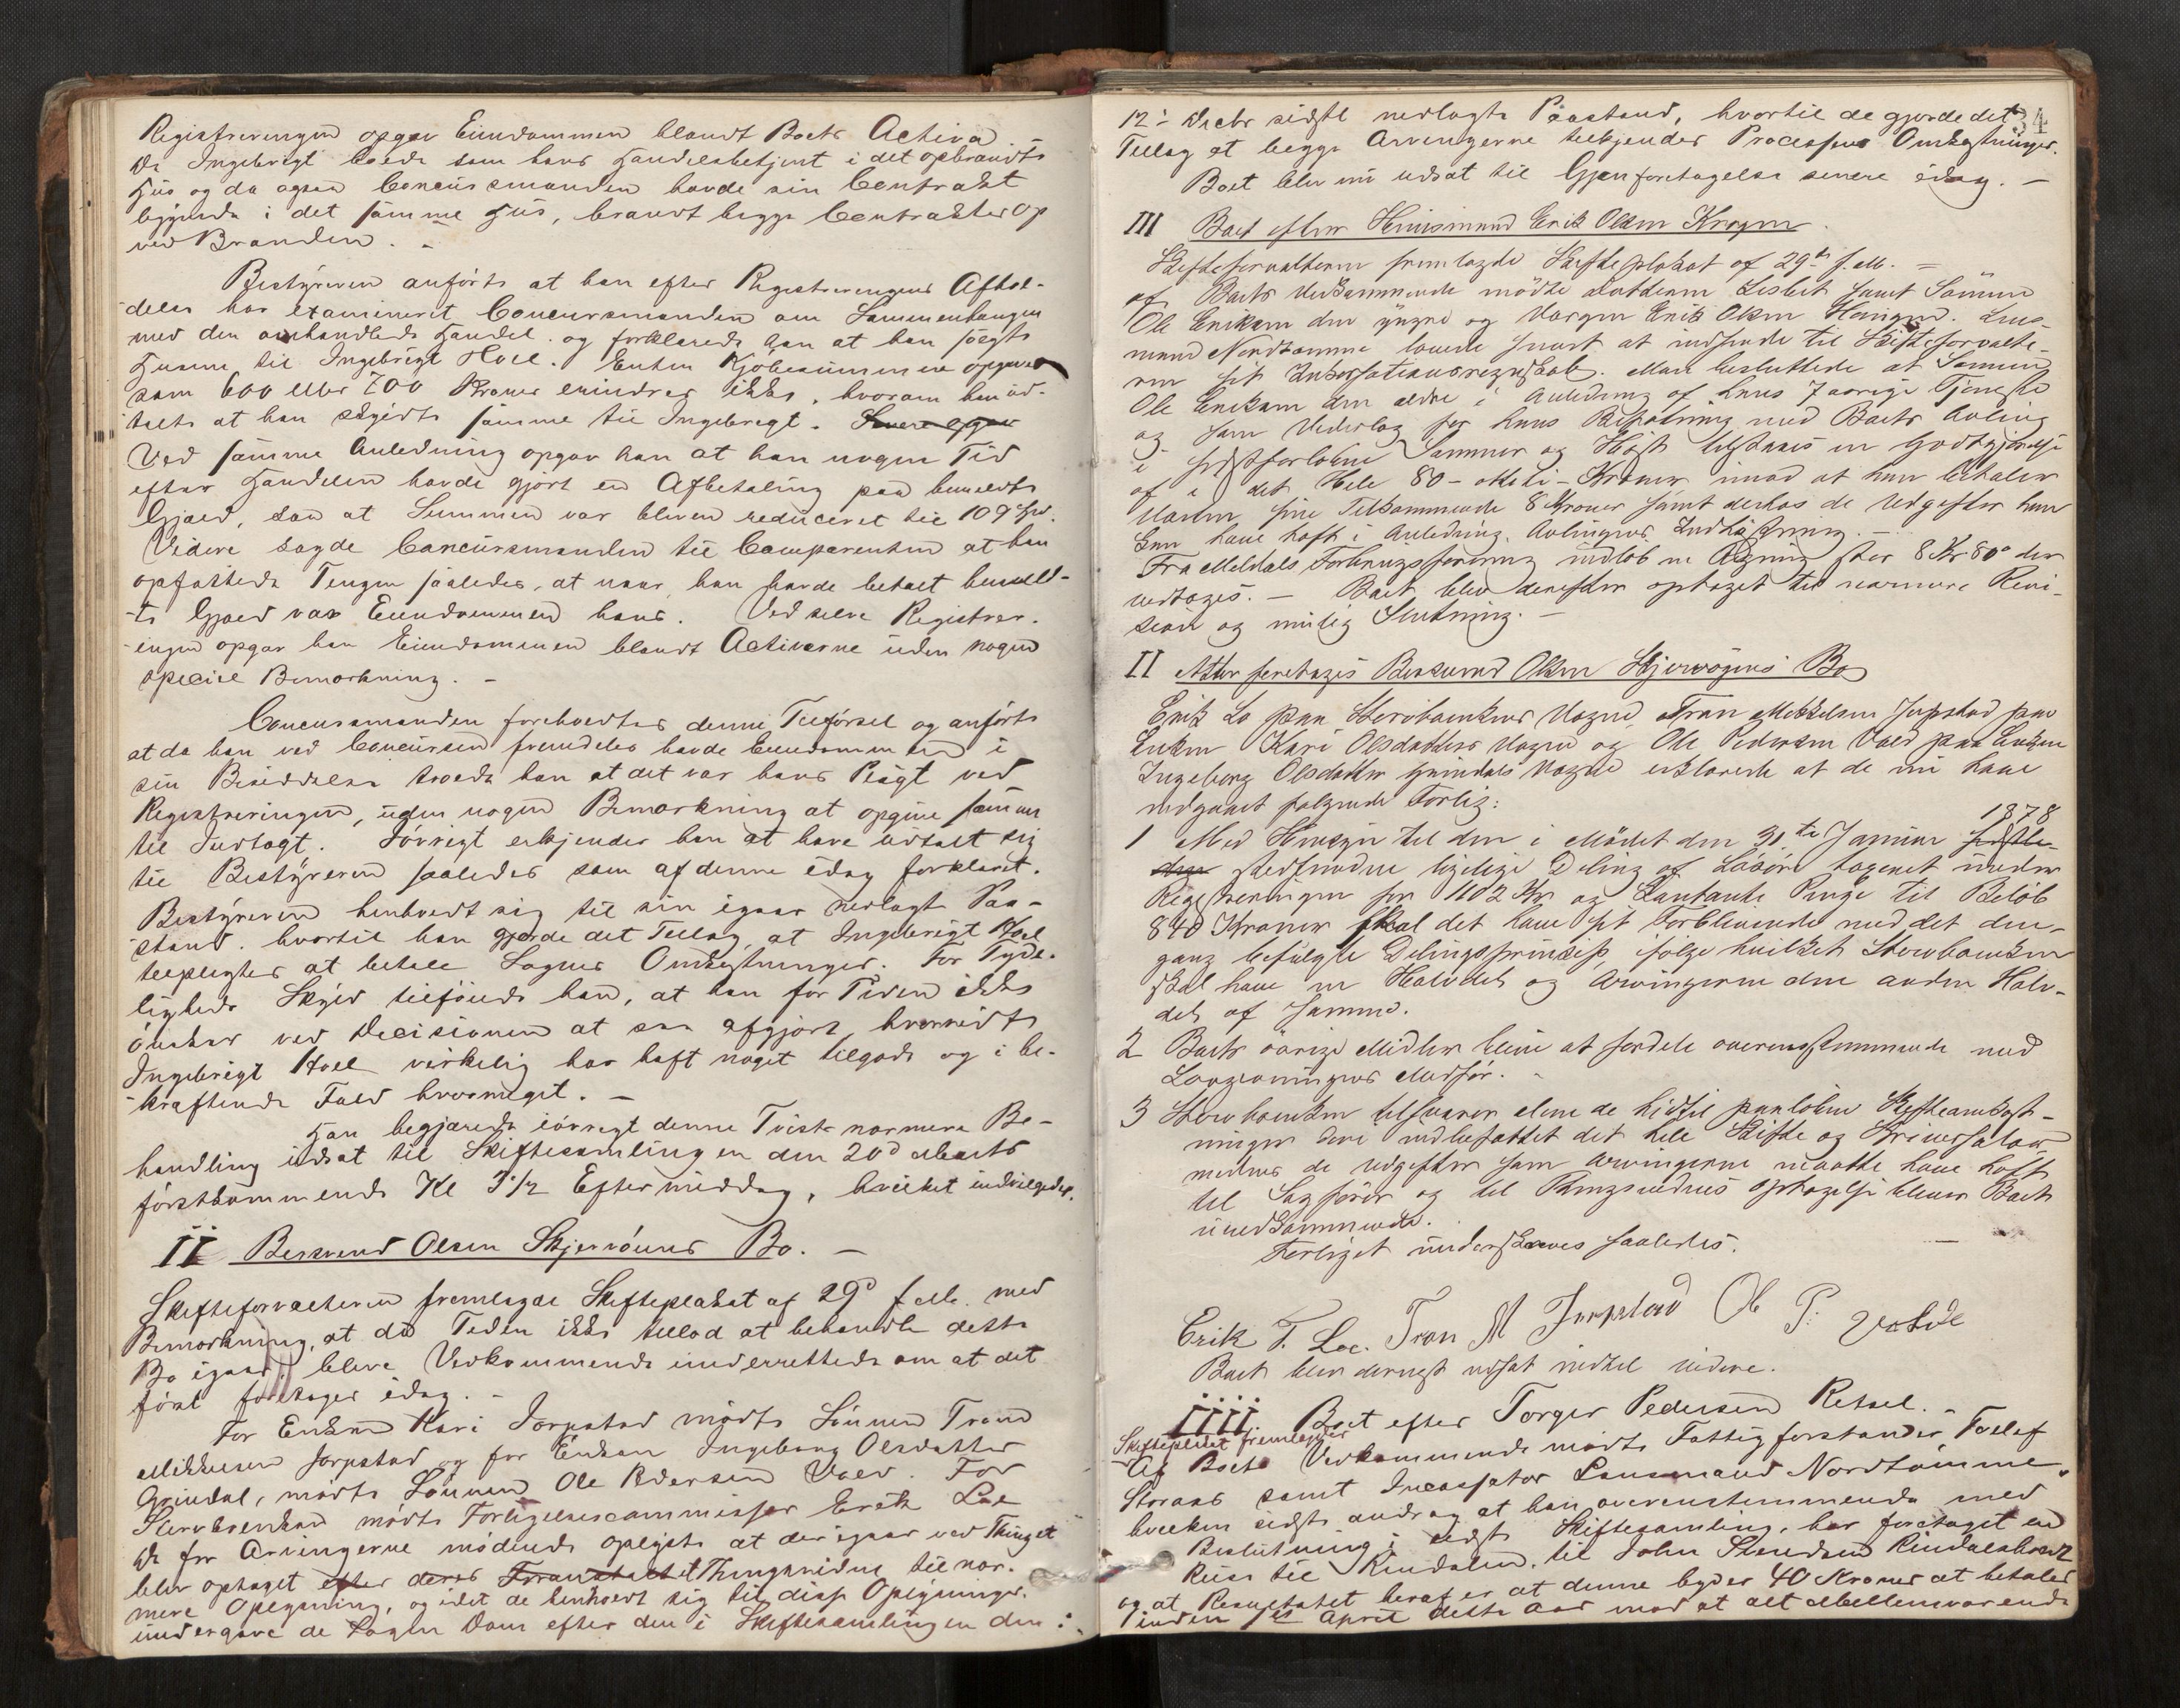 Registreringen opgav Eiendommen blandt Boets Activa
Da Ingebrigt boede som hans Handelsbetjent i det opbrændte
Huus og da ogsaa Concursmanden havde sin Contrakt
liggende i det samme Huus, brændt begge Contrakter op
ved Branden. –
Bestyreren anførte at han efter Registreringens Afhol-
delse har examineret Concursmanden om Sammenhængen
med den omhandlede Handel og forklarede han at han solgte
Husene til Ingebrigt Hoel. Enten Kjøbesummen opgaves
som 600 eller 700 Kroner erindres ikke, hvorom han ud-
talte at han skyldte samme til Ingebrigt. Senere opgav
Ved samme Anledning opgav han at han nogen Tid
efter Handelen havde gjort en Afbetaling paa bemeldte
Gjæld, saa at Summen var bleven reduceret til 109 Spd.
Videre sagde Concursmanden til Comparenten at han
opfattede Tingen saaledes, at naar han havde betalt bemeld-
te Gjæld var Eiendommen hans. Ved selve Registrer-
ingen opgav han Eiendommen blandt Activerne uden nogen
speciel Bemærkning. –
Concursmanden forehvedtes denne Tilførsel og anførte
at da han ved Concursen fremdeles havde Eiendommen i
sin Besiddelse troede han at det var hans Pligt ved
Registreringen, uden nogen Bemærkning at opgive samme
til Indtægt. Iøvrigt erkjender han at have udtalt sig
til Bestyreren saaledes som af denne idag forklaret.
Bestyreren henholdt sig til sin igaar nedlagte Paa-
stand, hvortil han gjorde det Tillæg, at Ingebrigt Hoel
tilpligtes at betale Sagens Omkostninger. For Tyde-
ligheds Skyld tilføiede han, at han for Tiden ikke
ønsker ved Decisionen at saa afgjort, hvorvidt
Ingebrigt Hoel virkelig har haft noget tilgode og i be-
kræftende Fald hvormeget. –
Han begjærede iøvrigt denne Tvists nærmere Be-
handling udsat til Skiftesamlingen den 20d Marts
førstkommende Kl 3 1/2 Eftermiddag, hvilket indvilgedes.
II Bersvend Olsen Skjervøiens Bo. –
Skifteforvalteren fremlagde Skifteplakat af 29d f. M. med
Bemærkning, at da Tiden ikke tillod at behandle dette
Bo igaar, bleve Vedkommende underrettede om at det
først foretages idag. –
For Enken Kari Jorpstad mødte Sønnen Trond
Mikkelsen Jorpstad og for Enken Ingeborg Olsdatter
Grindal, mødte Sønnen Ole Pedersen Vold. For
Stervboenken mødte Forligelsescommissær Erik Loe
De for Arvingerne mødende oplyste at der igaar ved Thinget
blev optaget efter deres Foranstaltet Thingsvidne til nær-
mere Oplysning, og idet de henholdt sig til disse Oplysninger.
undergave de Sagen Dom efter den i Skiftesamlingen den
34
12te Decbr sidstl nedlagte Paastand, hvortil de gjorde det
Tillæg at begge Arvingerne tilkjendes Processens Omkostninger.
Boet blev nu udsat til Gjenforetagelse senere idag. –
III Boet efter Huusmand Erik Olsen Krogen
Skifteforvalteren fremlagde Skifteplakat af 29de f. M. –
af Boets Vedkommende mødte Datteren Lisbet samt Sønnen
Ole Eriksen den yngre og Værgen Erik Olsen Haugen. Lens-
mand Nordtømme lovede snart at indsende til Skifteforvalte-
ren sit Incassationsregnskab. Man besluttede at Sønnen
Ole Eriksen den ældre i Anledning af hans 7 aarige Tjeneste
og som Vederlag for hans Befatning med Boets Avling
i sidstforløbne Sommer og Høst tilstaaes en Godtgjørelse
af i det Hele 80 – otteti – Kroner imod at han betaler
Varen sine Tilkommende 8 Kroner samt derhos de Udgifter han
kan have haft i Anledning Avlingens Indhøstning. –
Fra Meldals Forliknings indløb en Regning stor 8 Kr 80 ø der
vedtages. – Boet blev derefter optaget til nærmere Revi-
sion og mulig Slutning. –
II Atter foretages Berswend Olsen Skjerwøgens Bo
Erik Lo paa Stervboenkens Vegne, Tron Mikkelsen Jupstad paa
Enken Kari Olsdatters Vegne og Ole Pedersen Vold paa Enken
Ingeborg Olsdatter Grindals Vegne erklærede at de nu have
indgaaet følgende Forlig:
1 Med Hensyn til den i Mødet den 31te Januar 1878 sidstle-
den stedfundne ligelige Deling af Løsøre taxeret under
Registreringen for 1102 Kr og Contante Penge til Beløb
840 Kroner skal det have sit Forblivende med det den-
gang befulgte Delingsprincip, ifølge hvilket Stervboenken
skal have en Halvdel og Arvingerne den anden Halv-
del af samme.
2 Boets øvrige Midler blive at fordele overensstemmende med
Lovgivningens Medfør. –
3 Stervboenken tilsvarer alene de hidtil paaløbne Skifteomkost-
ninger deri indbefattet det hele Skifte og Skriversalær
medens de Udgifter som Arvingerne maatte have haft
til Sagfører og til Thingsvidnes Optagelse bliver Boet
uvedkommende.
Forliget underskreves saaledes.
Erik T. Loe. Tron M Jorpstad Ole P. Volde
Boet blev dernest udsat indtil videre.
IIII. Boet efter Torger Pedersen Retsel. –
Skifteplakat fremlagdes
Af Boets Vedkommende mødte Fattigforstander Tollef
Storaas samt Incassator Lensmand Nordtømme,
hvilken sidste androg at han overensstemmende med
Beslutning i sidste Skiftesamling, har foretaget en
Reise til Rindalen, til John Svendsen Rindalsholt
og at Resultatet heraf er at denne byder 40 Kroner at betales
inden 1ste April dette Aar mod at alt Mellemværende